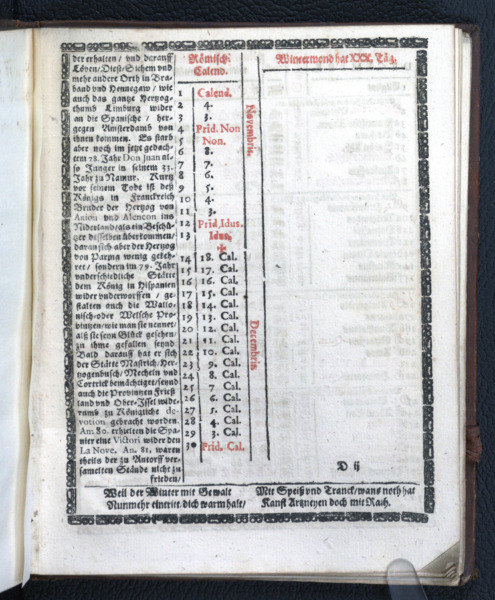 der erhalten / vnd darauff
Löven / Diest / Sichem vnd
mehr andere Orth in Bra-
band vnd Hennegaw / wie
auch das gantze Hertzog-
thumb Limburg wider
an die Spanische / her-
gegen Amsterdamb von
ihnen kommen. Es starb
aber noch im jetzt gedach-
tem 78. Jahr Don Juan al-
so Junger in seinem 33.
Jahr zu Namur. Kurtz
vor seinem Todt ist deß
Königs in Franckreich
Bruder der Hertzog von
Aniou vnd Alencon ins
Niderland / als ein Beschü-
tzer desselben überkommen /
daran sich aber der Hertzog
von Parma wenig gekeh-
ret / sondern im 79. Jahr
vnderschiedliche Stätte
dem König in Hispanien
wider vnderworffen / ge-
stalten auch die Wallo-
nisch- oder Welsche Pro-
vintzen / wie man sie nennet /
als sie seyn Glück gesehen /
zu ihme gefallen seynd
Bald darauff hat er sich
der Stätte Mastrich / Her-
tzogenbusch / Mecheln vnd
Cortrick bemächtiget / seynd
auch die Provintzen Frieß-
land vnd Ober-Jssel wide-
rumb zu Königliche de-
votion gebracht worden.
An. 80. erhielten die Spa-
nier eine Victori wider den
La Nove. An. 81. waren
theils der zu Antorff ver-
samelten Stände nicht zu
frieden /
Römisch.
Calend.
1 Calend.
2 4.
3 3.
4 Prid. Non
5 Non.
6 8.
7 7.
8 6.
9 5.
10 4.
11 3.
12 Prid. Idus.
13 Idus.
14 18. Cal.
15 17. Cal.
16 16. Cal.
17 15. Cal.
18 14. Cal.
19 13. Cal.
20 12. Cal.
21 11. Cal.
22 10. Cal.
23 9. Cal.
24 8. Cal.
25 7. Cal.
26 6. Cal.
27 5. Cal.
28 4. Cal.
29 3. Cal.
30 Prid. Cal.
Novembris.
Decembris.
Wintermond hat XXX. Täg.
D ij
Weil der Winter mit Gewalt
Nunmehr eintritt / dich warm halt /
Mit Speiß vnd Tranck / wans noth hat
Kanst Artzneyen doch mit Rath.